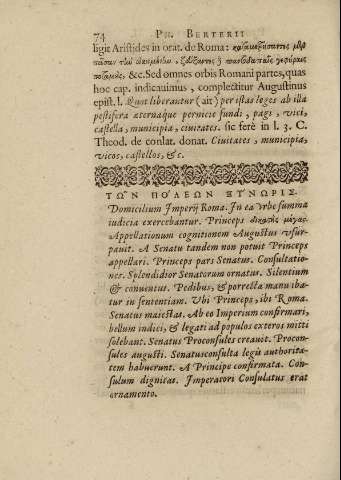 74 PH. BERTERII
ligie Aristides in orat. de Roma:
&c. Sed omnes orbis Romani partes, quas
hoc cap. indicauimus, complectitur Augustinus
epist. l. Quot liberantur (ait) per istas leges ab illa
pestifera æternaque pernicie fundi, pagi, vici,
castella, municipia, ciuitates. sic ferè in l. 3. C.
Theod. de conlat. donat. Ciuitates, municipia,
vicos, castellos, &c.
ΤΩΝ ΠΟΛΕΩΝ ΞΥΝΩΡΙΣ.
Domicilium Imperÿ Roma. In ea Vrbe summa
iudicia exercebantur. Princeps δικαστὴς μέγας.
Appellationum cognitionem Augustus vsur-
pauit. A Senatu tandem non potuit Princeps
appellari. Princeps pars Senatus. Consultatio-
nes. Splendidior Senatorum ornatus. Silentium
& conuentus. Pedibus, & porrecta manu iba-
tur in sententiam. Vbi Princeps, ibi Roma.
Senatus maiestas. Ab eo Imperium confirmari,
bellum indici, & legati ad populos exteros mitti
solebant. Senatus Proconsules creauit. Procon-
sules augusti. Senatusconsulta legũ authorita-
tem habuerunt. A Principe confirmata. Con-
sulum dignitas. Imperatori Consulatus erat
ornamento.